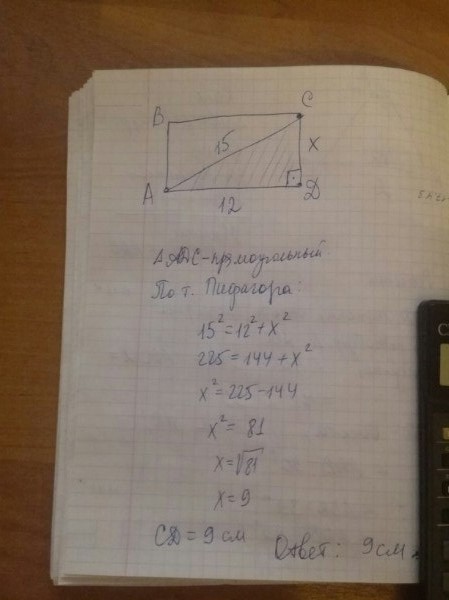 B C
15 x
A D
12
△ADC-прямоугольный
По т. Пифагора:
15²=12²+x²
225=144+x²
x²=225-144
x²= 81
x=√81
x=9
CD=9см
Ответ: 9см